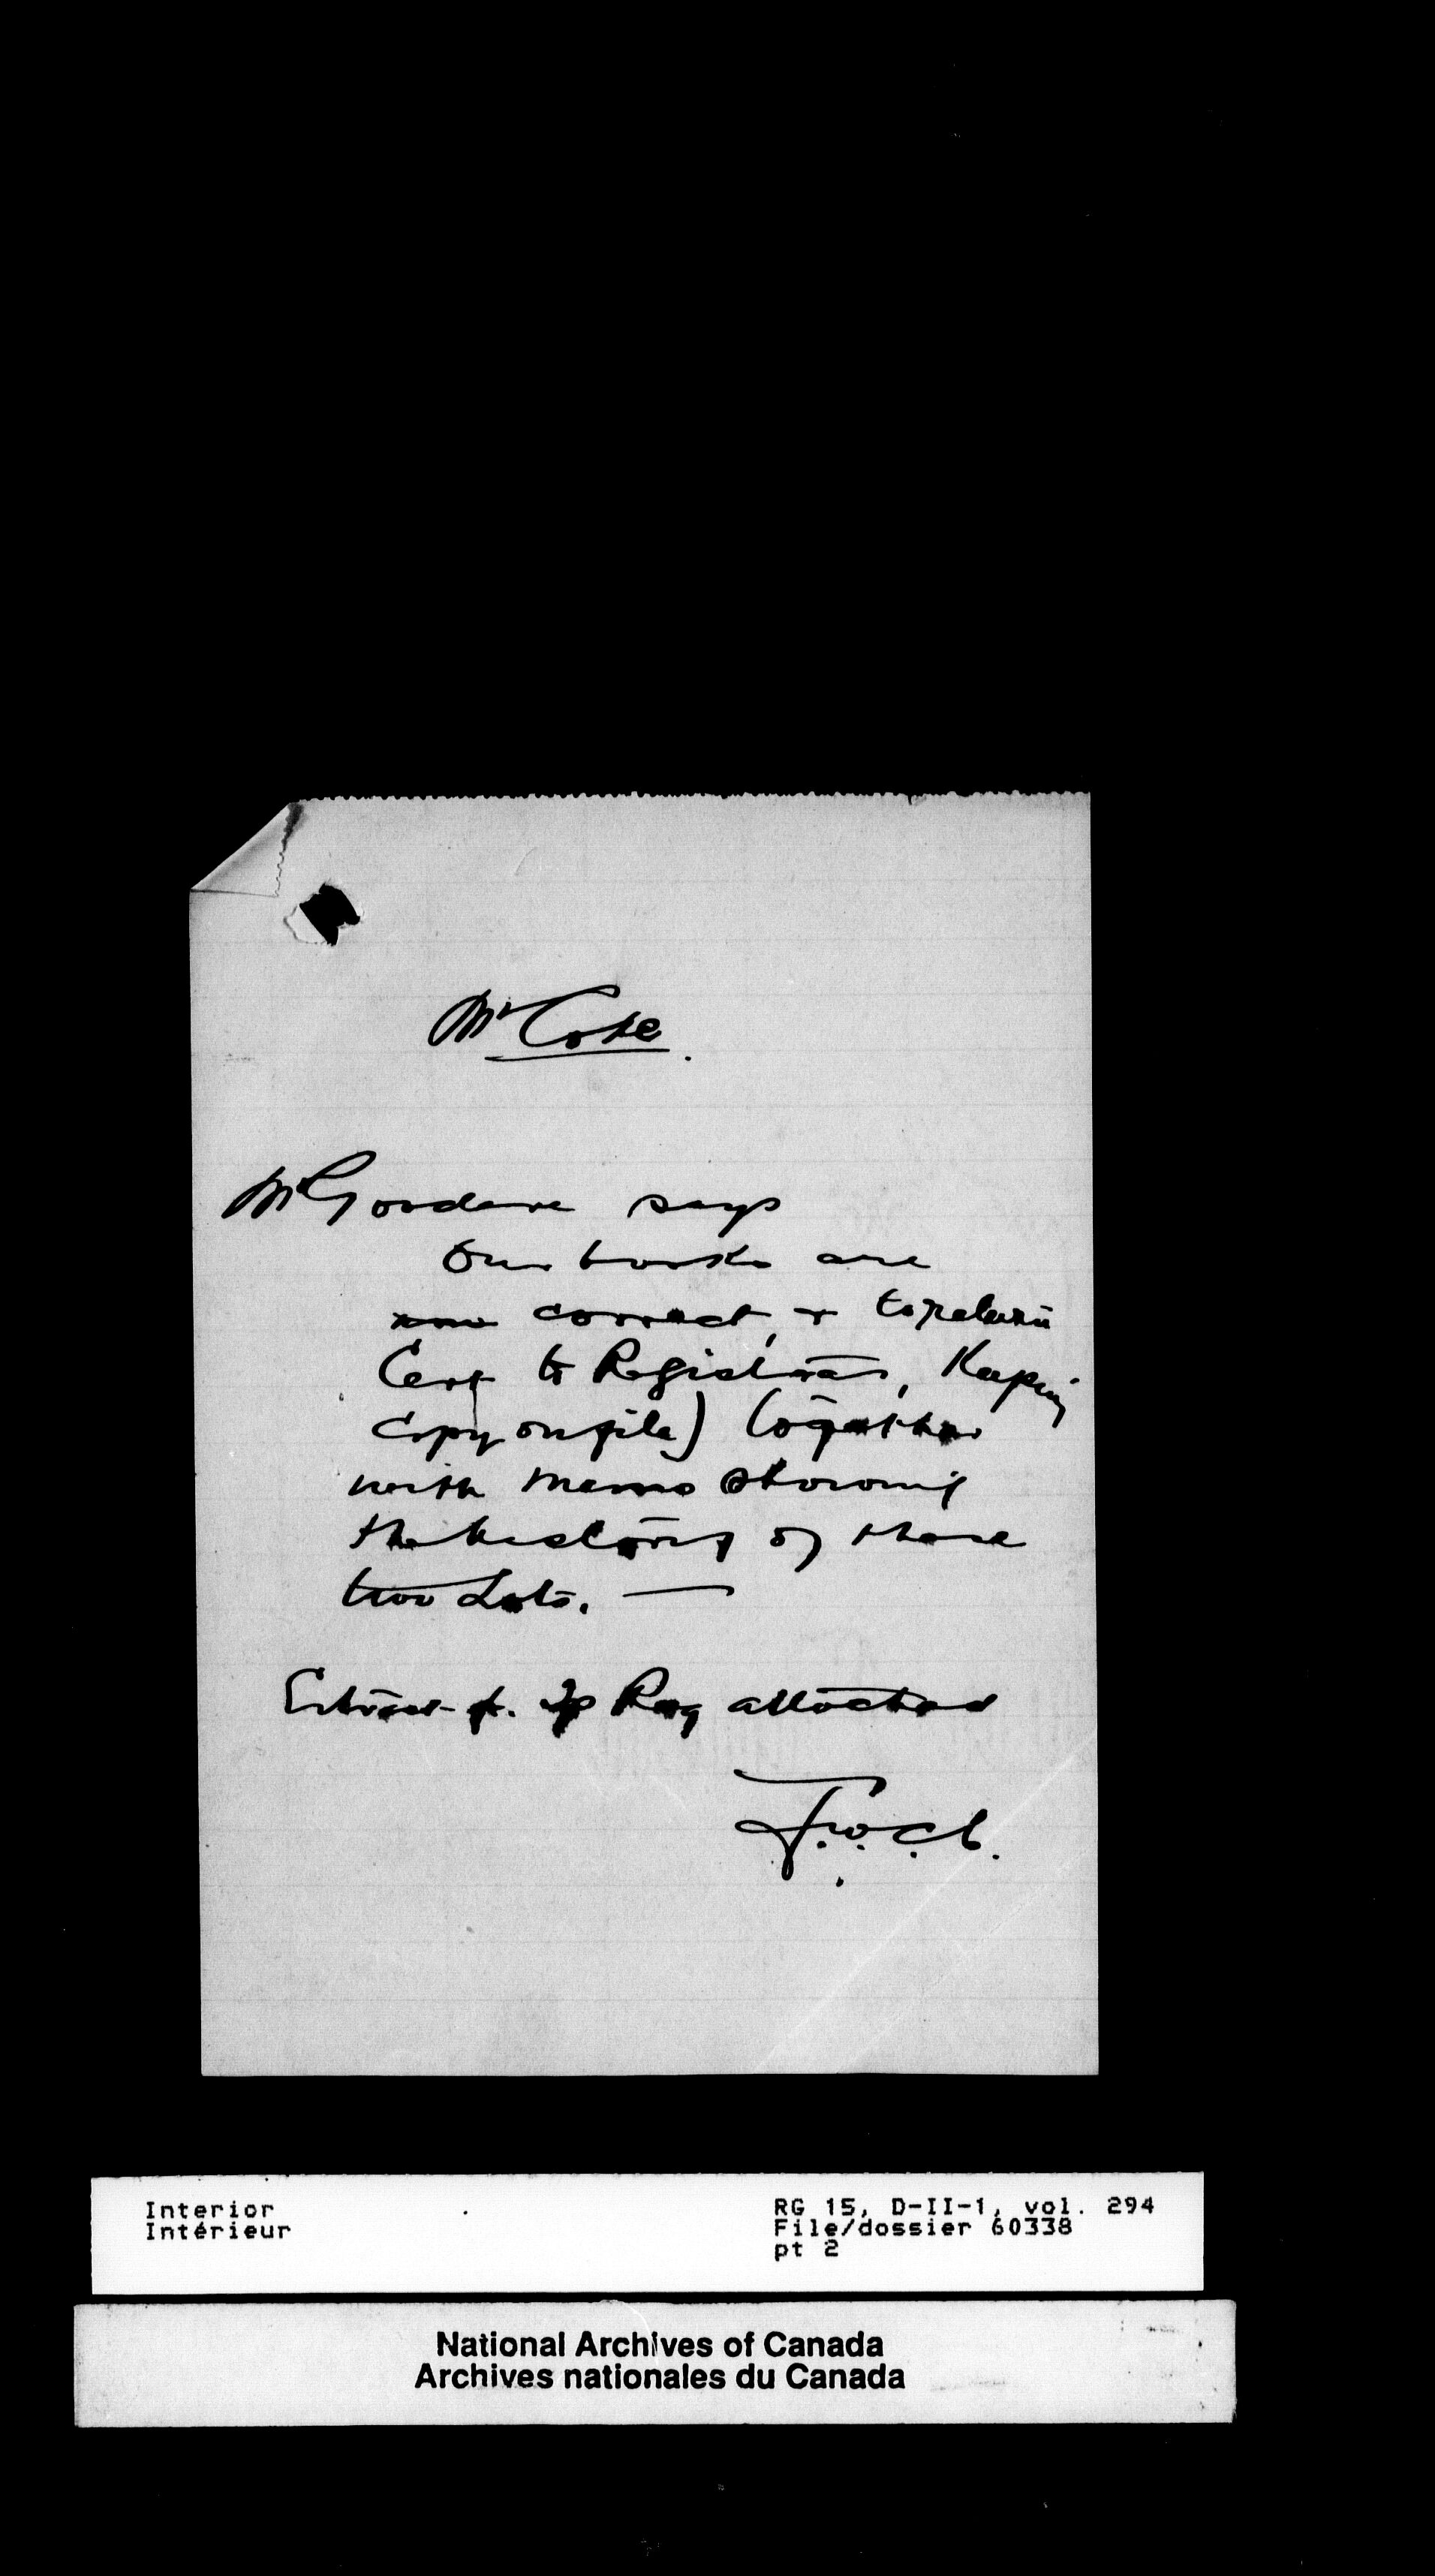 Mr Cote.
Mr Goodeve says
Our books are
now correct, & to return
Cert to Registrar, Keeping
copy on file) together
with memo showing
the history of these
two Lots. —
Extract fr. Tp Reg attached
Interior
Intérieur
RG 15, D-II-1, vol. 294
File/dossier 60338
pt 2
National Archives of Canada
Archives nationales du Canada